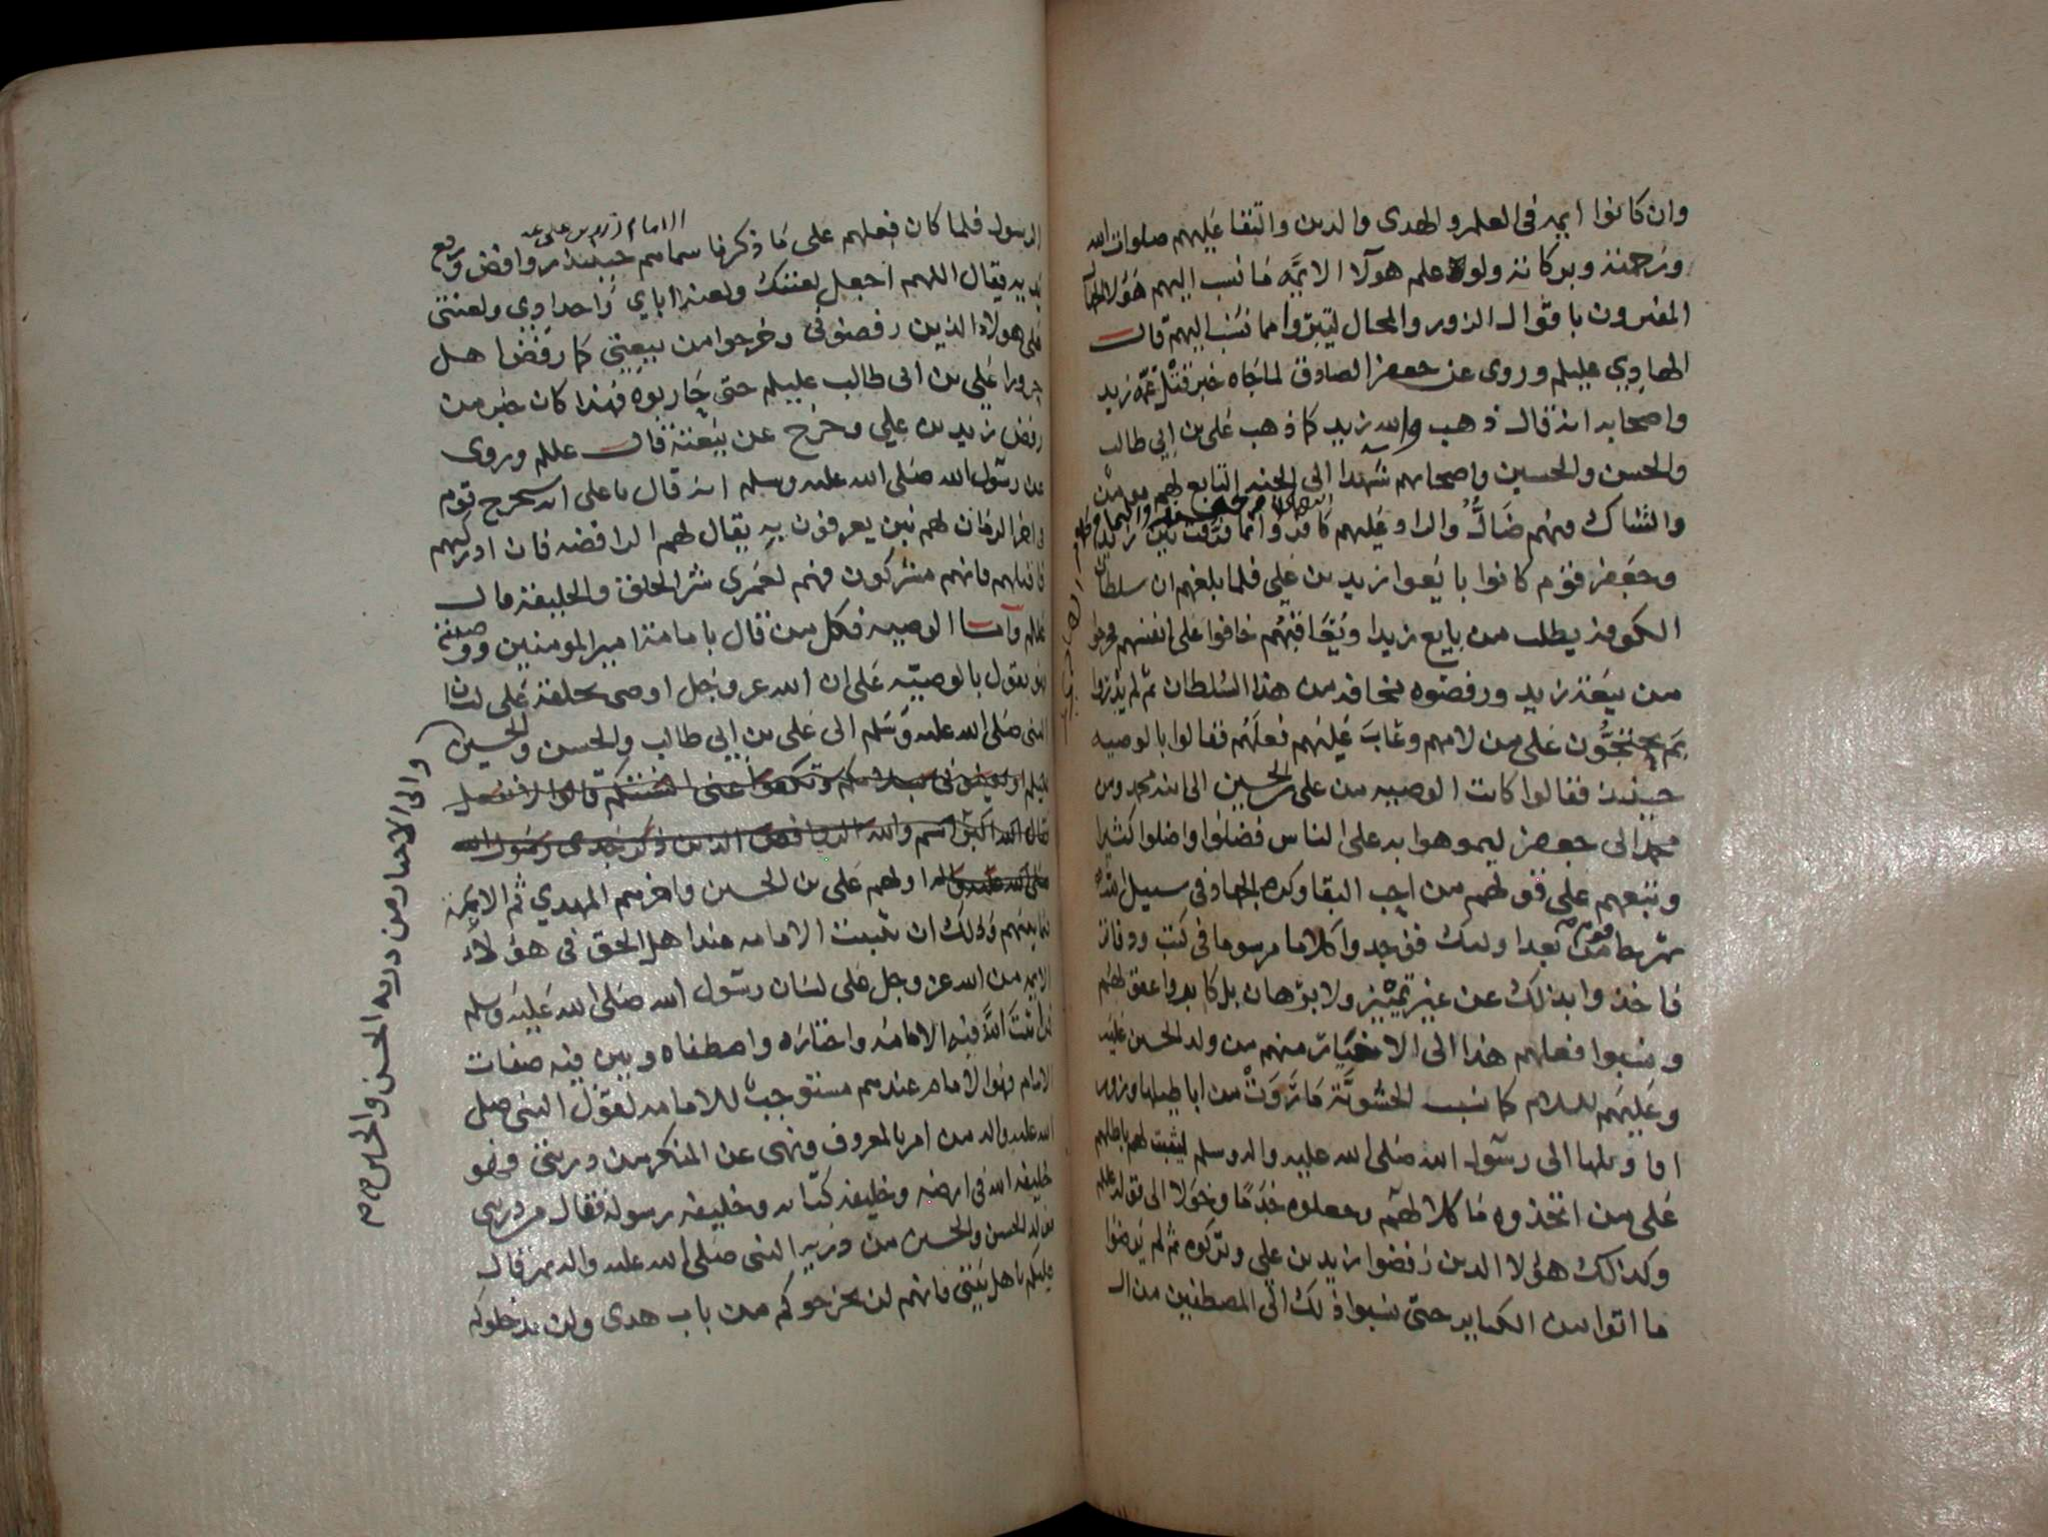 وان كانوا ايمه في العلم والهدى والدين والتقا عليهم صلوات الله
ورحمته وبركاته ولو علم هولا الايمه ما نسب اليهم هولا الجهال
المفترون باقوال الزور والمحال لتبروا مما نسب اليهم قال
الهادي عليلم وروى عن جعفر الصادق لما جاه خبر قتل عمه زيد
واصحابه انه قال ذهب والله زيد كما ذهب علي بن ابي طالب
والحسن والحسين واصحابهم شهدا الى الجنه التابع لهم مومن
والشاك فيهم ضال والراد عليهم كافر وانما فرقت بين زيد
وجعفر قوم كانوا بايعوا زيد بن علي فلما بلغهم ان سلطان
الكوفه يطلب من بايع زيدا ويعاقبهم خافوا على انفسهم فخرجوا
من بيعة زيد ورفضوه مخافة من هذا السلطان ثم لم يدروا
بم يحتجون على من لامهم وعاب عليهم فعلهم فقالوا بالوصيه
حينئذ فقالوا كانت الوصيه من علي بن الحسين الى ابنه محمد ومن
محمد الى جعفر ليموهوا به على الناس فضلوا واضلوا كثيرا
وتبعهم على قولهم من احب البقا وكره الجهاد في سبيل الله
ثم جا قوم من بعد اوليك فوجدوا كلاما مرسوما في كتب ودفاتر
فاخذوا بذلك عن غير تمييز ولا برهان بل كابروا عقولهم
ونسبوا فعلهم هذا الى الاخيار منهم من ولد الحسين عليه
وعليهم السلام كما نسب الحشوية ما روت من اباطيلها وزور
اقاويلها الى رسول الله صلى الله عليه واله وسلم ليثبت لهم باطلهم
على من اتخذوه ماكلة لهم وجعلوه خدما وخولا
وكذلك هولا الذين رفضوا زيد بن علي وتركوه ثم لم يرضوا
ما اتوا من الكباير حتى نسبوا ذلك الى المصطفين من ال
الرسول فلما كان فعلهم على ما ذكرنا سماهم حينئذ روافض ورفع
الامام زيد بن علي
يديه يقال اللهم اجعل لعنتك ولعنة اباي واجدادي ولعنتي
على هولاء الذين رفضوني وخرجوا من بيعتي كما رفض اهل
حرورا علي بن ابي طالب عليلم حتى حاربوه فهذا كان خبر من
رفض زيد بن علي وخرج عن بيعته قال عللم وروى
عن رسول الله صلى الله عليه وسلم انه قال يا علي انه سيخرج قوم
في اخر الزمان لهم نبز يعرفون به يقال لهم الرافضه فان ادركتهم
فاقتلهم فانهم مشركون فهم لعمري شر الخلق والخليقة قال
عللم واما الوصيه فكل من قال بامامة امير المومنين ووصيته
فهو يقول بالوصيه على ان الله عز وجل اوصى بخلقه على لسان
النبي صلى الله عليه وسلم الى علي بن ابي طالب والحسن والحسين
والى الاخيار من ذرية الحسن والحسين
اولهم علي بن الحسين واخرهم المهدي ثم الايمه
فيما بينهم وذلك ان تثبيت الامامه عند اهل الحق في هولاء
الايمه من الله عز وجل على لسان رسول الله صلى الله عليه وسلم
فمن اثبت الله فيه الامامه واختاره واصطفاه وبين فيه صفات
الامام فهو الامام عندهم مستوجب للامامه لقول النبي صلى
الله عليه واله من امر بالمعروف ونهى عن المنكر من ذريتي فهو
خليفة الله في ارضه وخليفة كتابه وخليفة رسوله فقال من ذريتي
من ولد الحسن والحسين من ذرية النبي صلى الله عليه واله ثم قال
عليكم باهل بيتي فانهم لن يخرجوكم من باب هدى ولن يدخلوكم